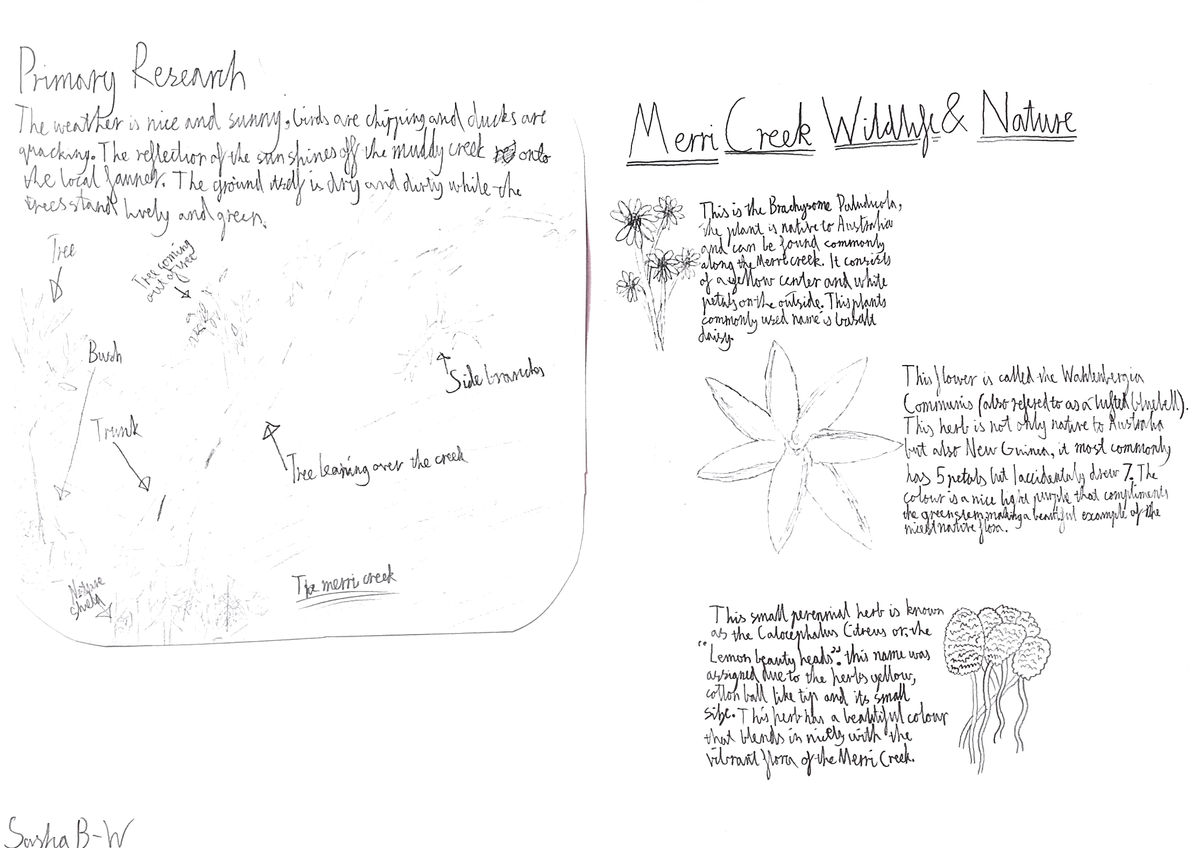 Primary Research
The weather is nice and sunny, birds are chipping and ducks are
quacking. The reflection of the sun shines off the muddy creek onto
the local fauner. The ground itself is dry and dirty while the
trees stand lively and green.
Tree
Tree coming
out of tree
Bush
Side branches
Trunk
Tree leaning over the creek
Nature
The merri creek
Sasha B-W
Merri Creek Wildlife & Nature
This is the Brachysome Paludicola,
the plant is native to Australia
and can be found commonly
along the Merri creek. It consists
of a yellow center and white
petals on the outside. This plants
commonly used name is basalt
daisy.
This flower is called the Wahlenbergia
Communis (also refered to as a tufted bluebell).
This herb is not only native to Australia
but also New Guinea, it most commonly
has 5 petals but I accidentaly drew 7. The
colour is a nice light purple that compliments
the green stem, making a beautiful example of the
nicest native flora.
This small perennial herb is known
as the Calocephalus Citreus or, the
"Lemon beauty heads". this name was
assigned due to the herbs yellow,
cotton ball like tip and its small
size. This herb has a beautiful colour
that blends in nicely with the
vibrant flora of the Merri Creek.